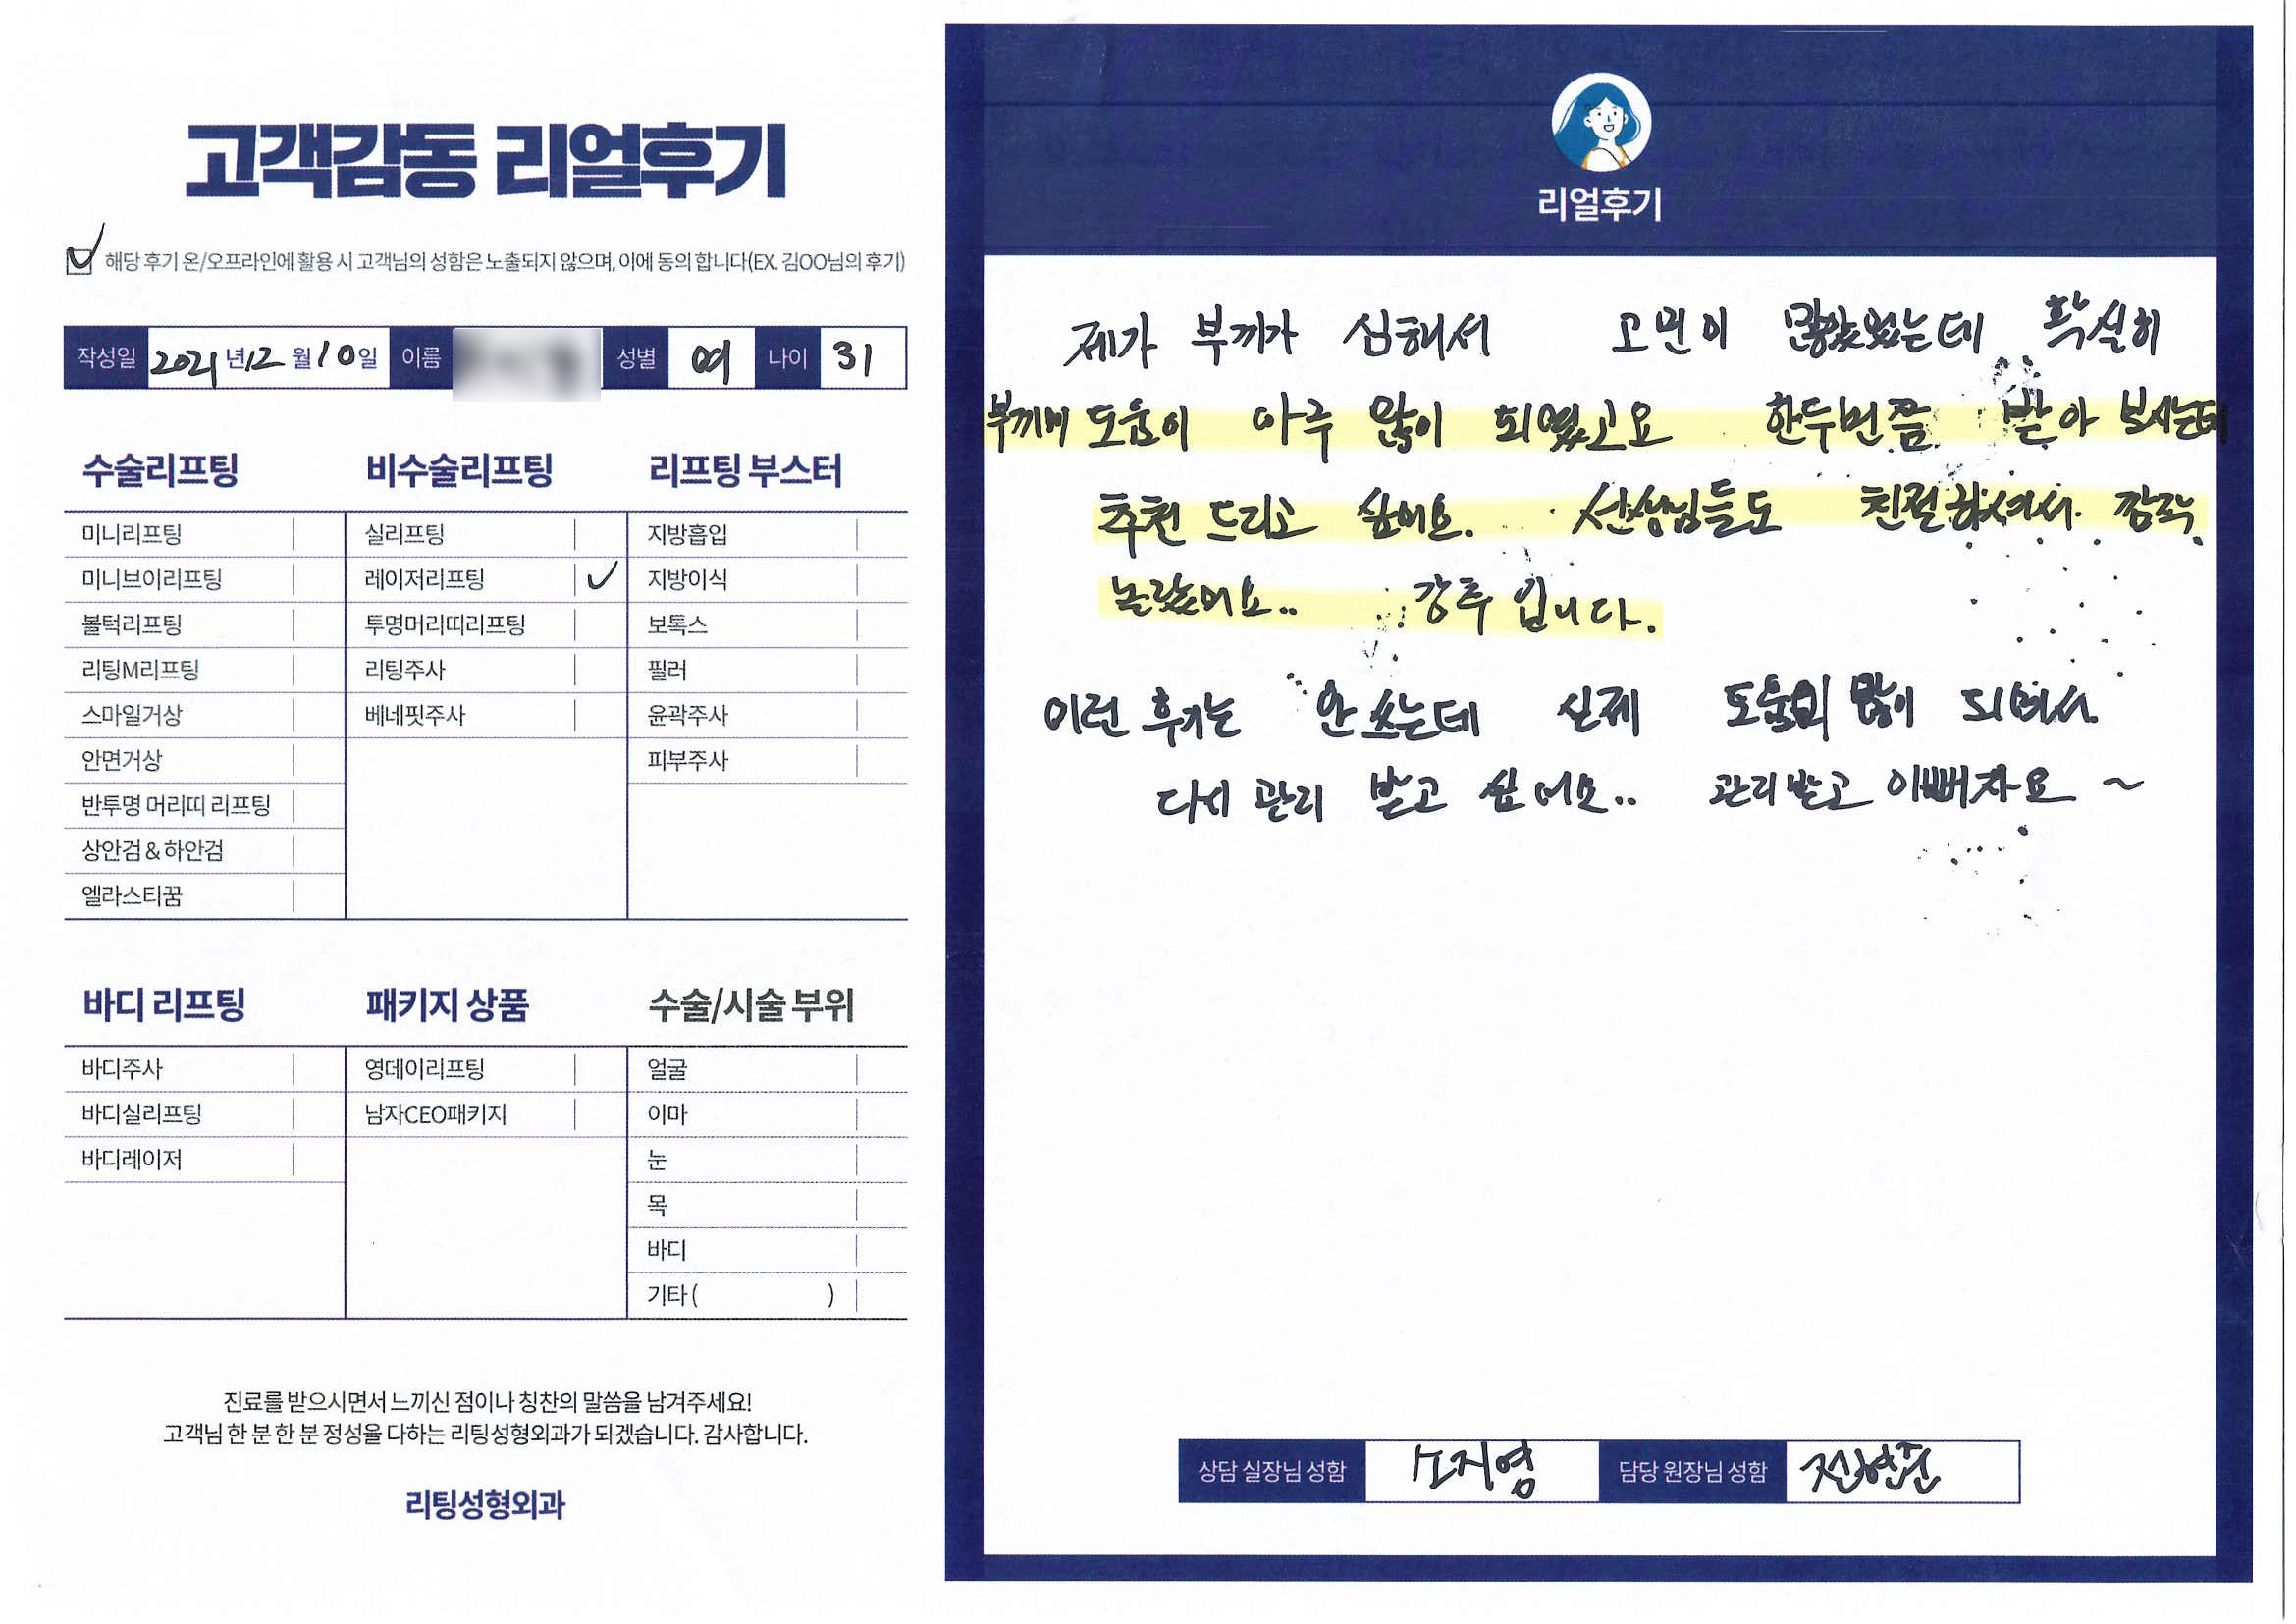 고객감동 리얼후기
해당 후기 온/오프라인에 활용 시 고객님의 성함은 노출되지 않으며, 이에 동의 합니다(EX. 김OO님의 후기)
작성일 2021년 12월 10일 이름 성별 여 나이 31
수술리프팅
미니리프팅
미니브이리프팅
볼턱리프팅
리팅M리프팅
스마일거상
안면거상
반투명 머리띠 리프팅
상안검 & 하안검
엘라스티꿈
비수술리프팅
실리프팅
레이저리프팅 ✓
투명머리띠리프팅
리팅주사
베네핏주사
리프팅 부스터
지방흡입
지방이식
보톡스
필러
윤곽주사
피부주사
바디 리프팅
바디주사
바디실리프팅
바디레이저
패키지 상품
영데이리프팅
남자CEO패키지
수술/시술 부위
얼굴
이마
눈
목
바디
기타 ( )
진료를 받으시면서 느끼신 점이나 칭찬의 말씀을 남겨주세요!
고객님 한 분 한 분 정성을 다하는 리팅성형외과가 되겠습니다. 감사합니다.
리팅성형외과
리얼후기
제가 부끼가 심해서 고민이 많았었는데 확실히
부끼에 도움이 아주 많이 되였고요 한두번쯤 받아 보시는데
추천 드리고 싶어요. 선상님들도 친절하셔서 깜작
놀랐어요.. 강추 입니다.
이런 후기는 안 쓰는데 실제 도움의 많이 되여서
다시 관리 받고 싶어요.. 관리받고 이뻐자요 ~
상담 실장님 성함 소지영 담당 원장님 성함